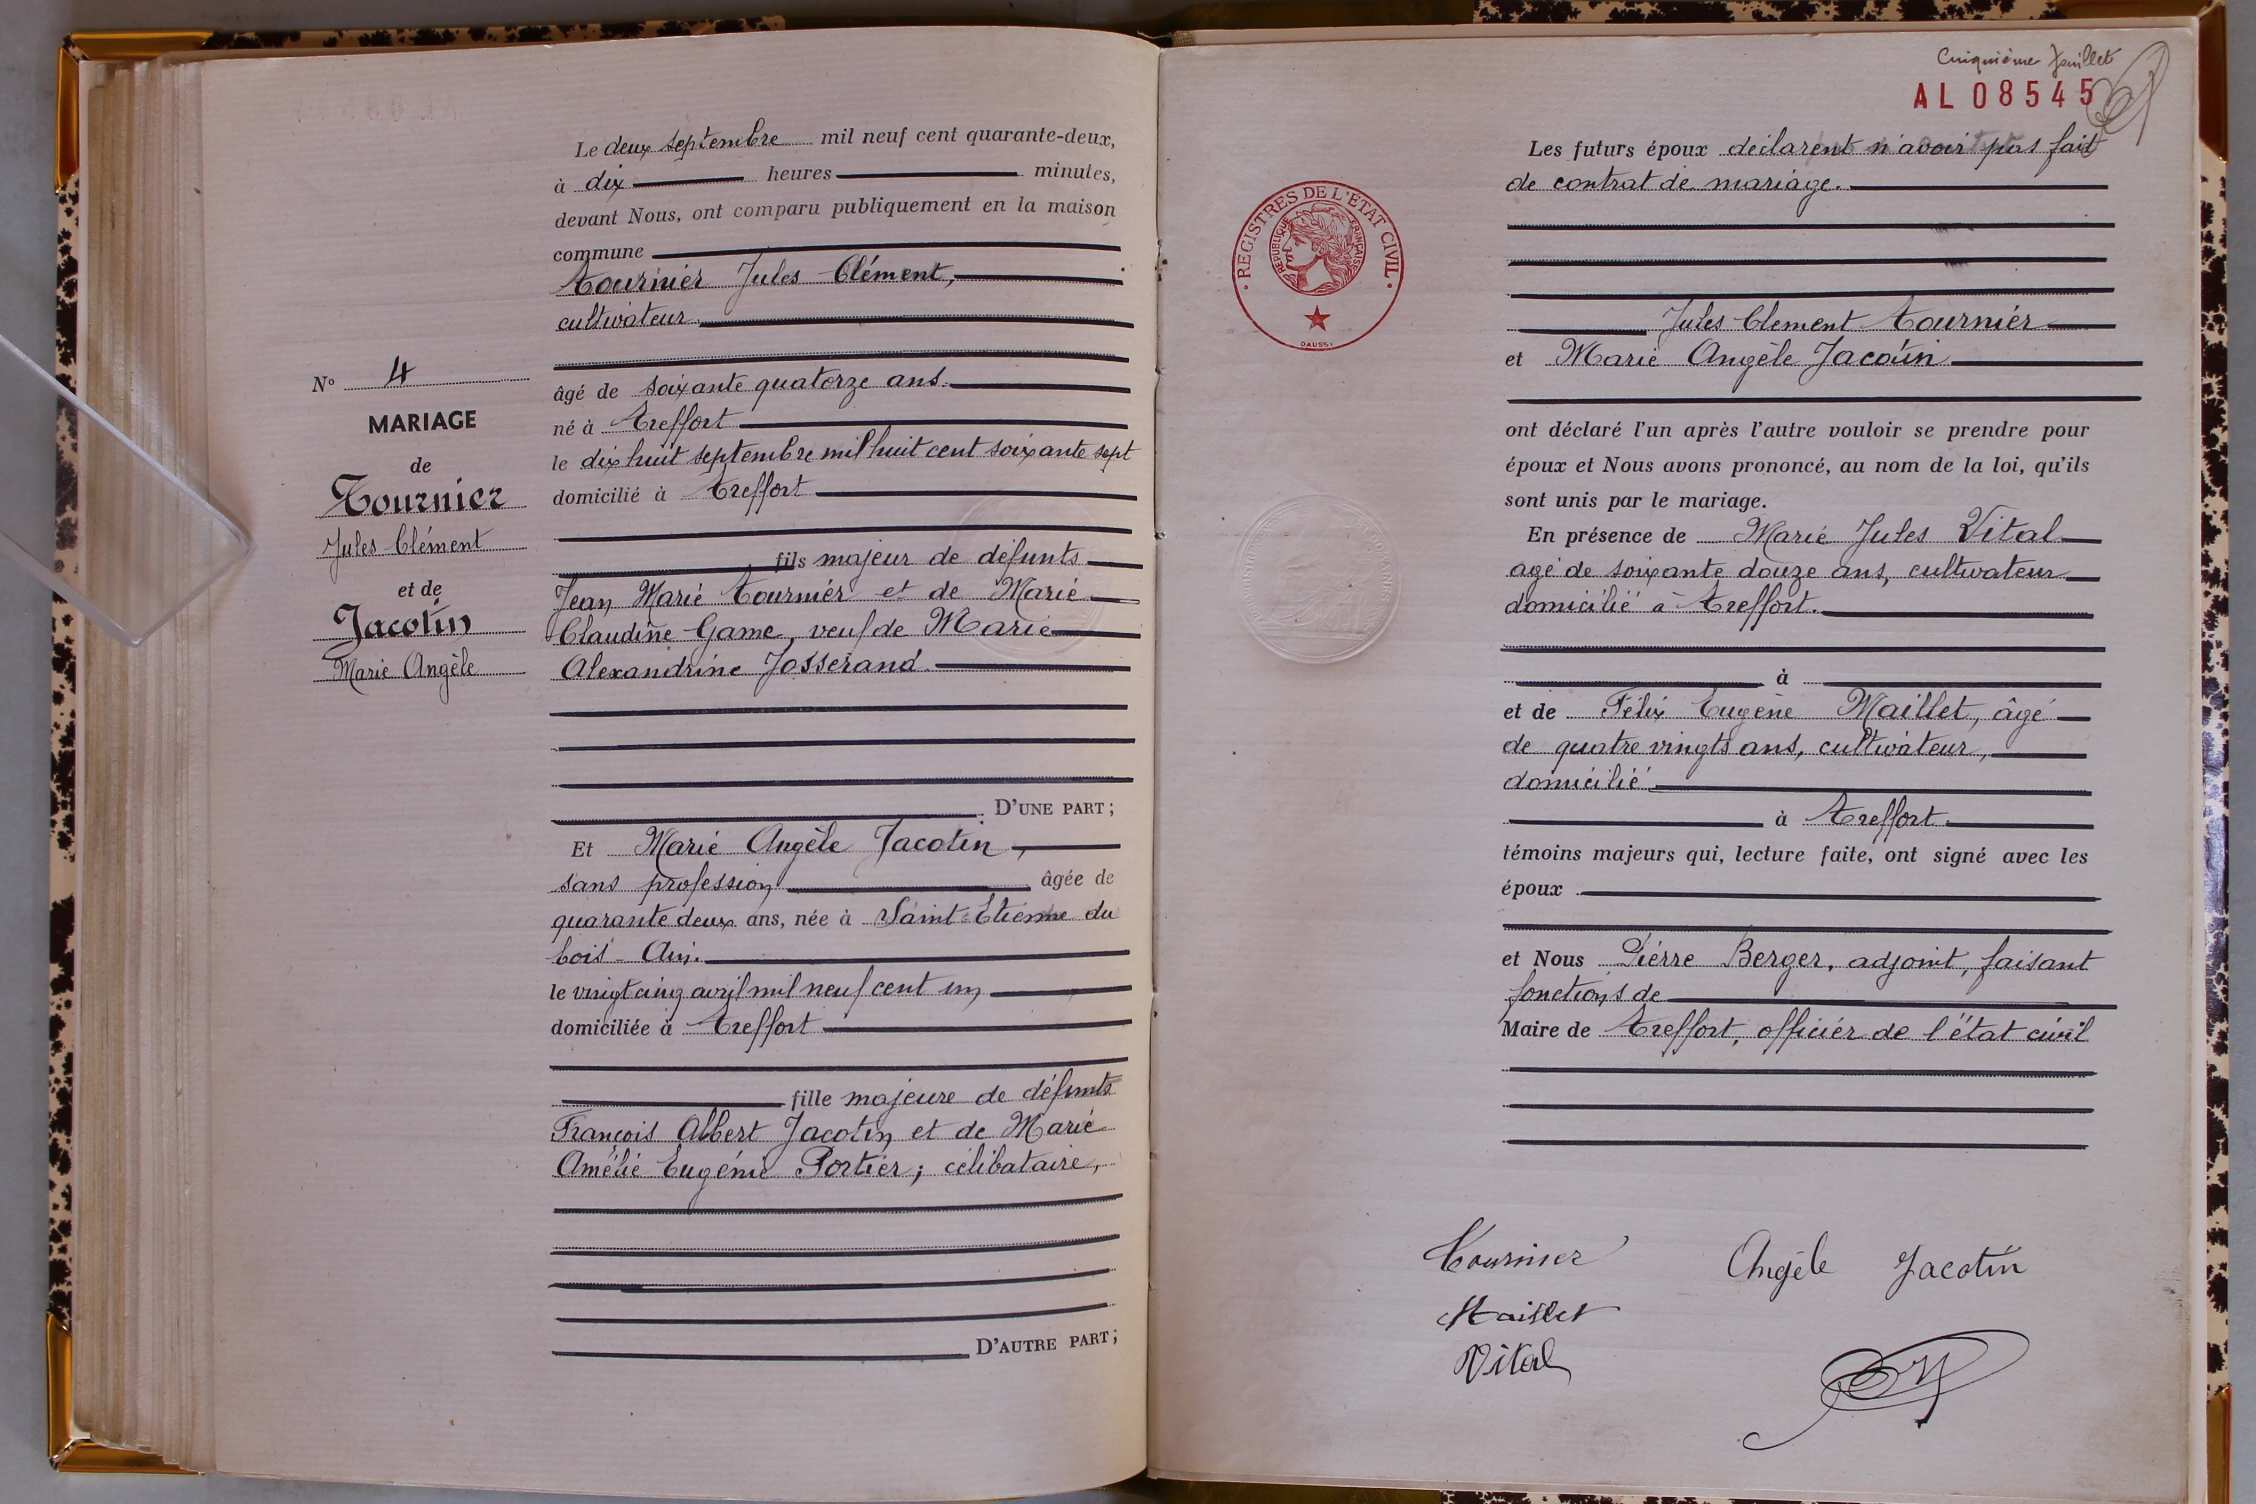 Le deux septembre mil neuf cent quarante-deux,
à dix heures minutes,
devant Nous, ont comparu publiquement en la maison
commune
Tournier Jules Clément,
cultivateur
N° 4
MARIAGE
de
Tournier
Jules Clément
et de
Jacotin
Marie Angèle
âgé de soixante quatorze ans.
né à Treffort
le dix huit septembre mil huit cent soixante sept
domicilié à Treffort
fils majeur de défunts
Jean Marie Tournier et de Marie
Claudine Game, veuf de Marie
Alexandrine Josserand.
D'UNE PART;
Et Marie Angèle Jacotin,
sans profession âgée de
quarante deux ans, née à Saint-Etienne du
bois - Ain.
le vingt cinq avril mil neuf cent un
domiciliée à Treffort
fille majeure de défunts
François Albert Jacotin et de Marie
Amélie Eugénie Portier; célibataire,
D'AUTRE PART;
Cinquième feuillet
AL08545
Les futurs époux déclarent n'avoir pas fait
de contrat de mariage.
REGISTRES DE L'ETAT CIVIL
REPUBLIQUE FRANÇAISE
DAUSSY
Jules Clément Tournier
et Marie Angèle Jacotin
ont déclaré l'un après l'autre vouloir se prendre pour
époux et Nous avons prononcé, au nom de la loi, qu'ils
sont unis par le mariage.
En présence de Marie Jules Vital
agé de soixante douze ans, cultivateur
domicilié à Treffort.
à
et de Félix Eugène Maillet, âgé
de quatre vingts ans, cultivateur,
domicilié
à Treffort.
témoins majeurs qui, lecture faite, ont signé avec les
époux
et Nous Pierre Berger, adjoint, faisant
fonctions de
Maire de Treffort, officier de l'état civil
Tournier Angèle Jacotin
Maillet
Vital